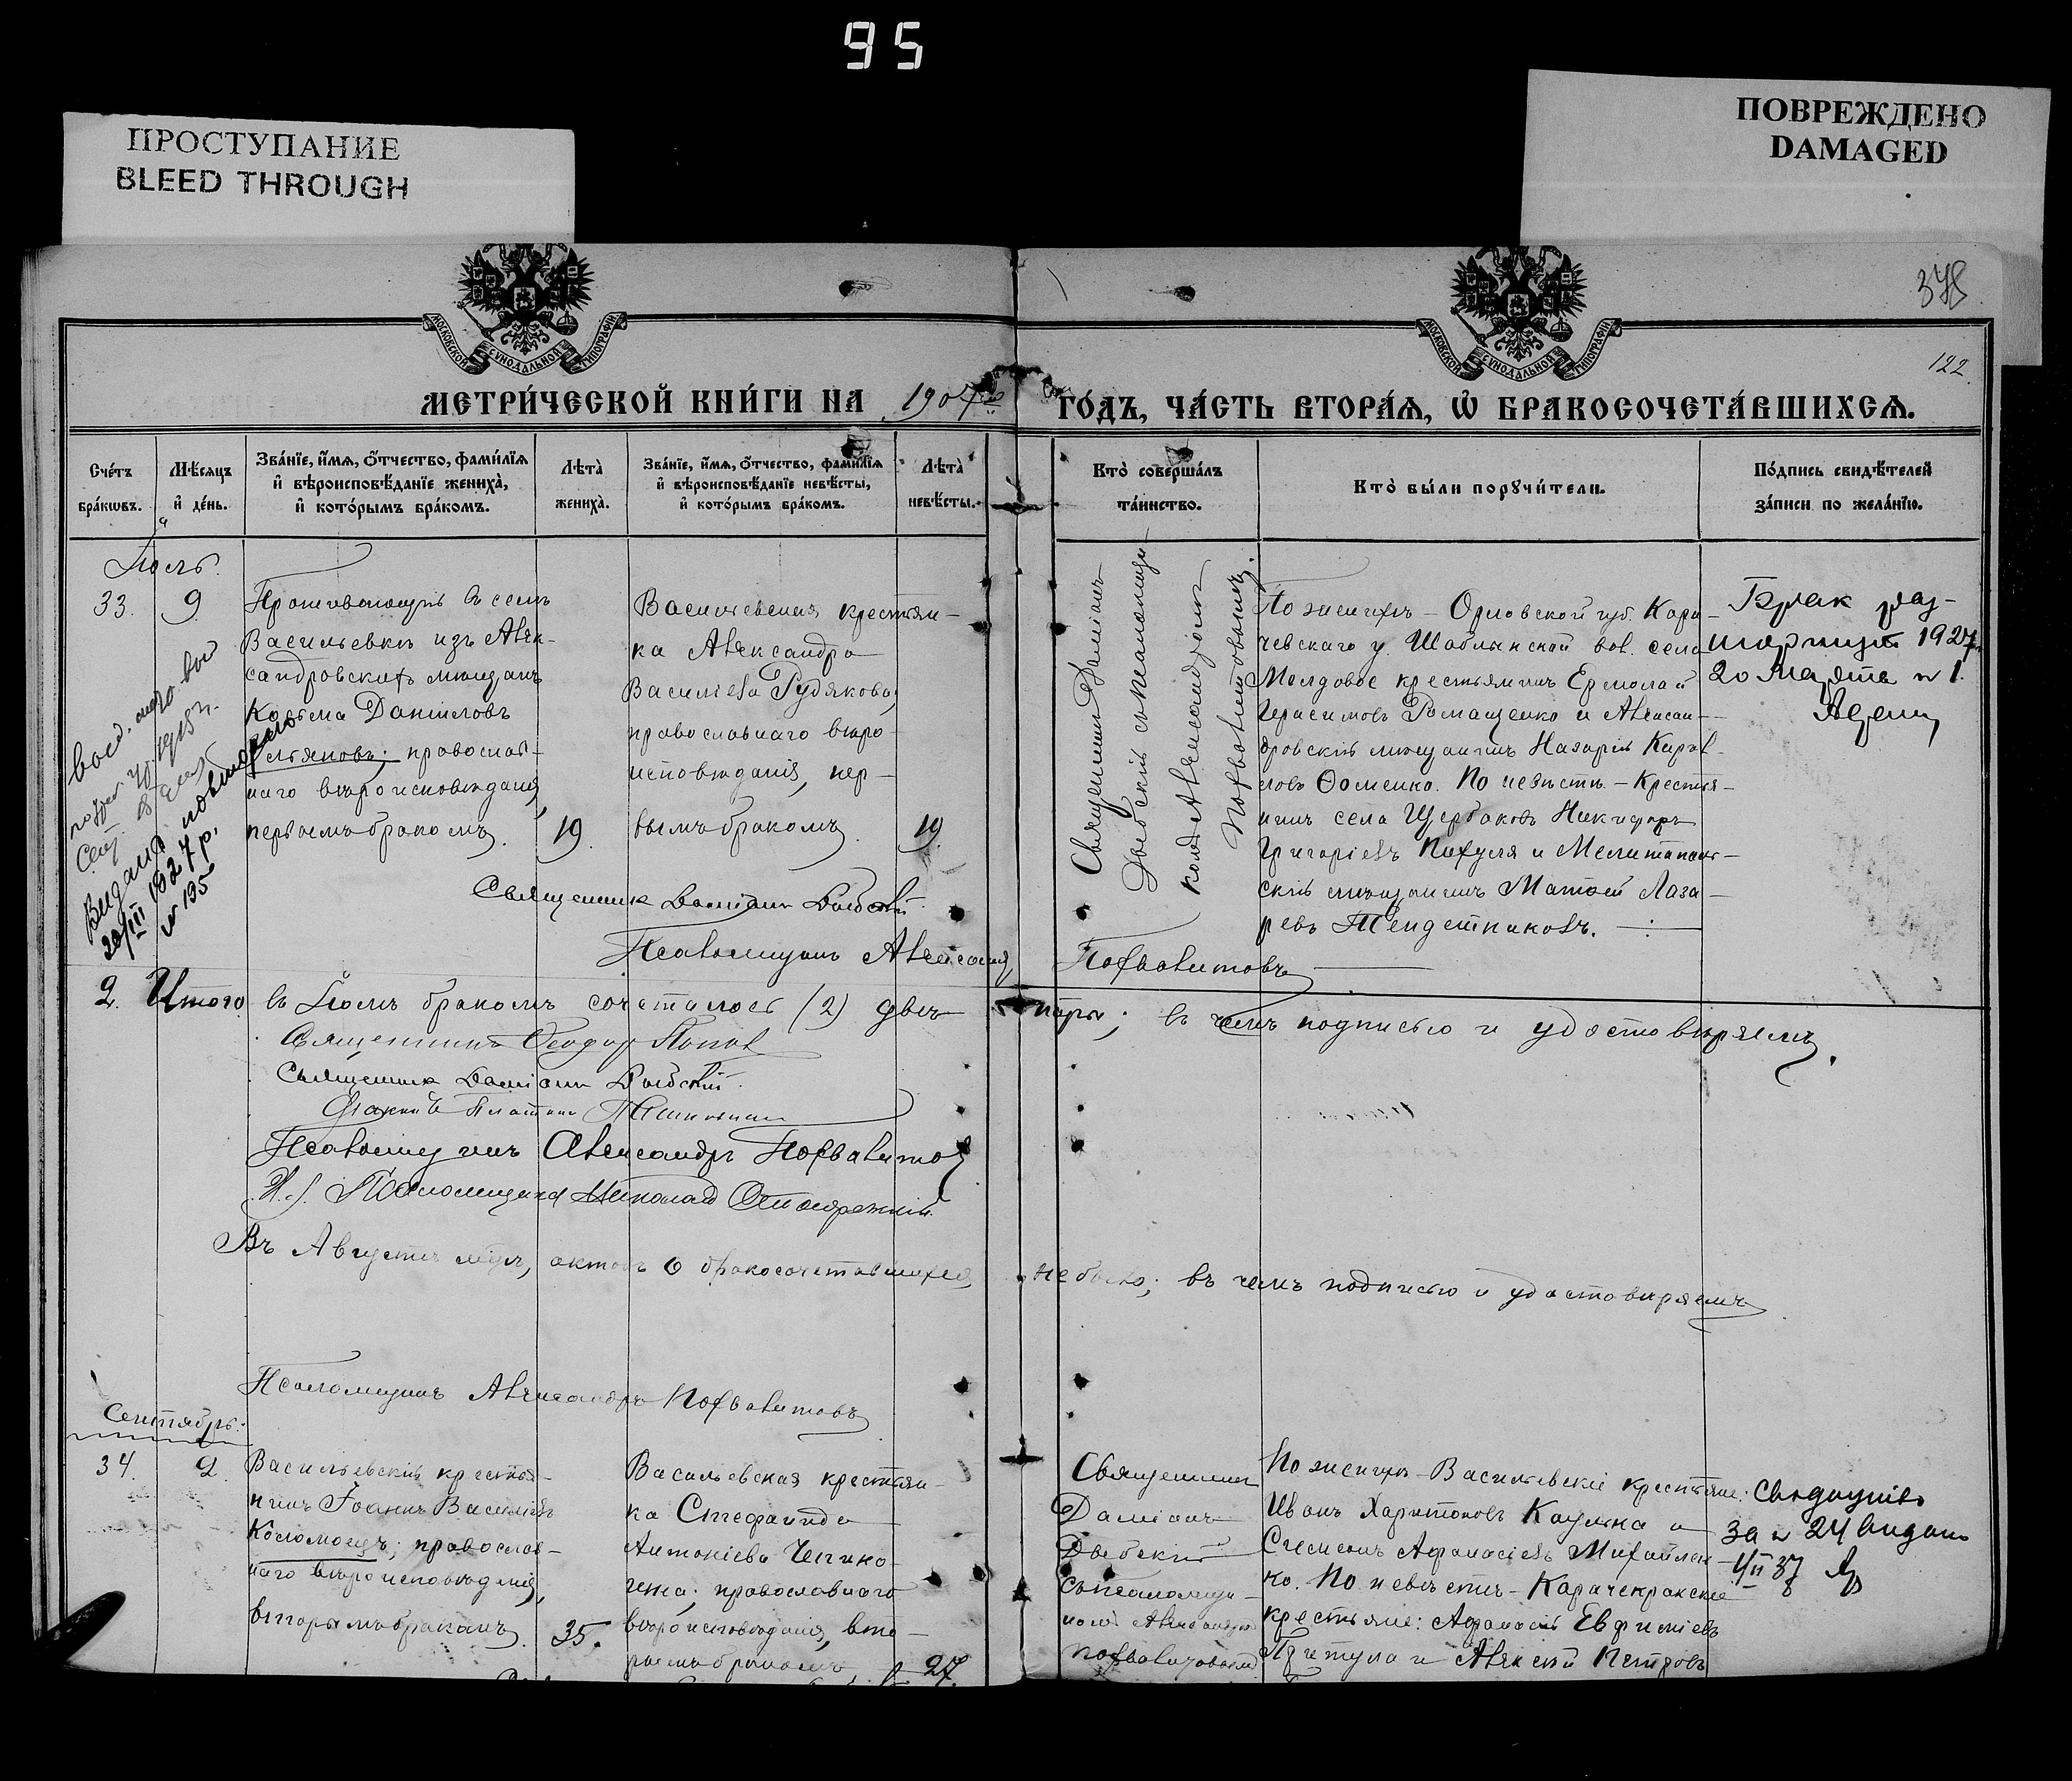 95
ПРОСТУПАНИЕ
BLEED THROUGH
ПОВРЕЖДЕНО
DAMAGED
МОСКОВСКОЙ СѴНОДАЛЬНОЙ ТИПОГРАФІИ
МОСКОВСКОЙ СѴНОДАЛЬНОЙ ТИПОГРАФІИ
122.
МЕТРИ́ЧЕСКОЙ КНИ́ГИ НА 1907й
ГО́ДЪ, ЧА́СТЬ ВТОРА́Я, Ѡ БРАКОСОЧЕТА́ВШИХСЯ.
Сче́тъ
бра́кѡвъ.
Мѣ́сяцъ
и҆ де́нь.
Зва́нїе, и҆́мя, ѻ҆́тчество, фами́лїя
и҆ вѣроисповѣ́данїе жениха̀,
и҆ кото́рымъ бра́комъ.
Лѣ́та
жениха̀.
Зва́нїе, и҆́мя, ѻ҆́тчество, фами́лїя
и҆ вѣроисповѣ́данїе невѣ́сты,
и҆ кото́рымъ бра́комъ.
Лѣ́та
невѣ́сты.
Кто̀ соверша́лъ
та́инство.
Кто̀ бы́ли порꙋчи́тели.
По́дпись свидѣ́телей
за́писи по жела́нїю.
Іюль.
33. 9.
Проживающій въ селѣ
Васильевкѣ изъ Алек-
сандровскихъ мѣщанъ
Козьма Даніиловъ
Ульяновъ; православ-
наго вѣроисповѣданія,
первымъ бракомъ. 19.
Васильевская крестьян-
ка Александра
Васильева Рудякова,
православнаго вѣро-
исповѣданія, пер-
вымъ бракомъ. 19.
Видана повторно
20/III 1927 р.
№ 195
Священникъ Даміанъ
Дыбскій съ псаломщи-
комъ Александромъ
Похвалитовымъ.
По женихѣ – Орловской губ. Кара-
чевскаго у. Шаблыкской вол. села
Молдовое крестьянинъ Ермолай
Герасимовъ Ромащенко и Алексан-
дровскій мѣщанинъ Назарій Карпов-
ловъ Ѳоменко. По невѣстѣ – Крестья-
нинъ села Щербаковъ Никифоръ
Григорьевъ Пихуля и Мелитополь-
скій мѣщанинъ Матѳей Лаза-
ревъ Тендетниковъ.
Брак рас-
торгнут 1927 г.
20 Марта № 1.
Священникъ Даміанъ Дыбскій
Псаломщикъ Александръ Похвалитовъ
2. Итого въ Іюлѣ бракомъ сочеталось (2) двѣ пары; въ чемъ подписью и удостовѣряемъ.
Священникъ Ѳеодоръ Попов
Священникъ Даміанъ Дыбскій.
Псаломщикъ Александръ Похвалитов
Въ Августѣ мѣсяцѣ, актовъ о бракосочетавшихся, не было; въ чемъ подписью и удостовѣряемъ
Псаломщикъ Александръ Похвалитовъ
Сентябрь:
34. 2.
Васильевскій крестья-
нинъ Іоаннъ Васильевъ
Коломоецъ; православ-
наго вѣроисповѣданія,
вторымъ бракомъ. 35.
Васильевская крестьян-
ка Стефанида
Антоніева Чепино-
гина; православнаго
вѣроисповѣданія, вто-
рымъ бракомъ, 27.
Священникъ
Даміанъ
Дыбскій
съ псаломщи-
комъ Александромъ
Похвалитовымъ
По женихѣ – Васильевскіе крестьяне:
Иванъ Харитоновъ Кацупка и
Симеонъ Аѳанасьевъ Михайлен-
ко. По невѣстѣ – Карачекракскіе
крестьяне: Аѳанасій Евфиміевъ
Притула и Алексій Петровъ
Свідоцтво
за № 24 видано